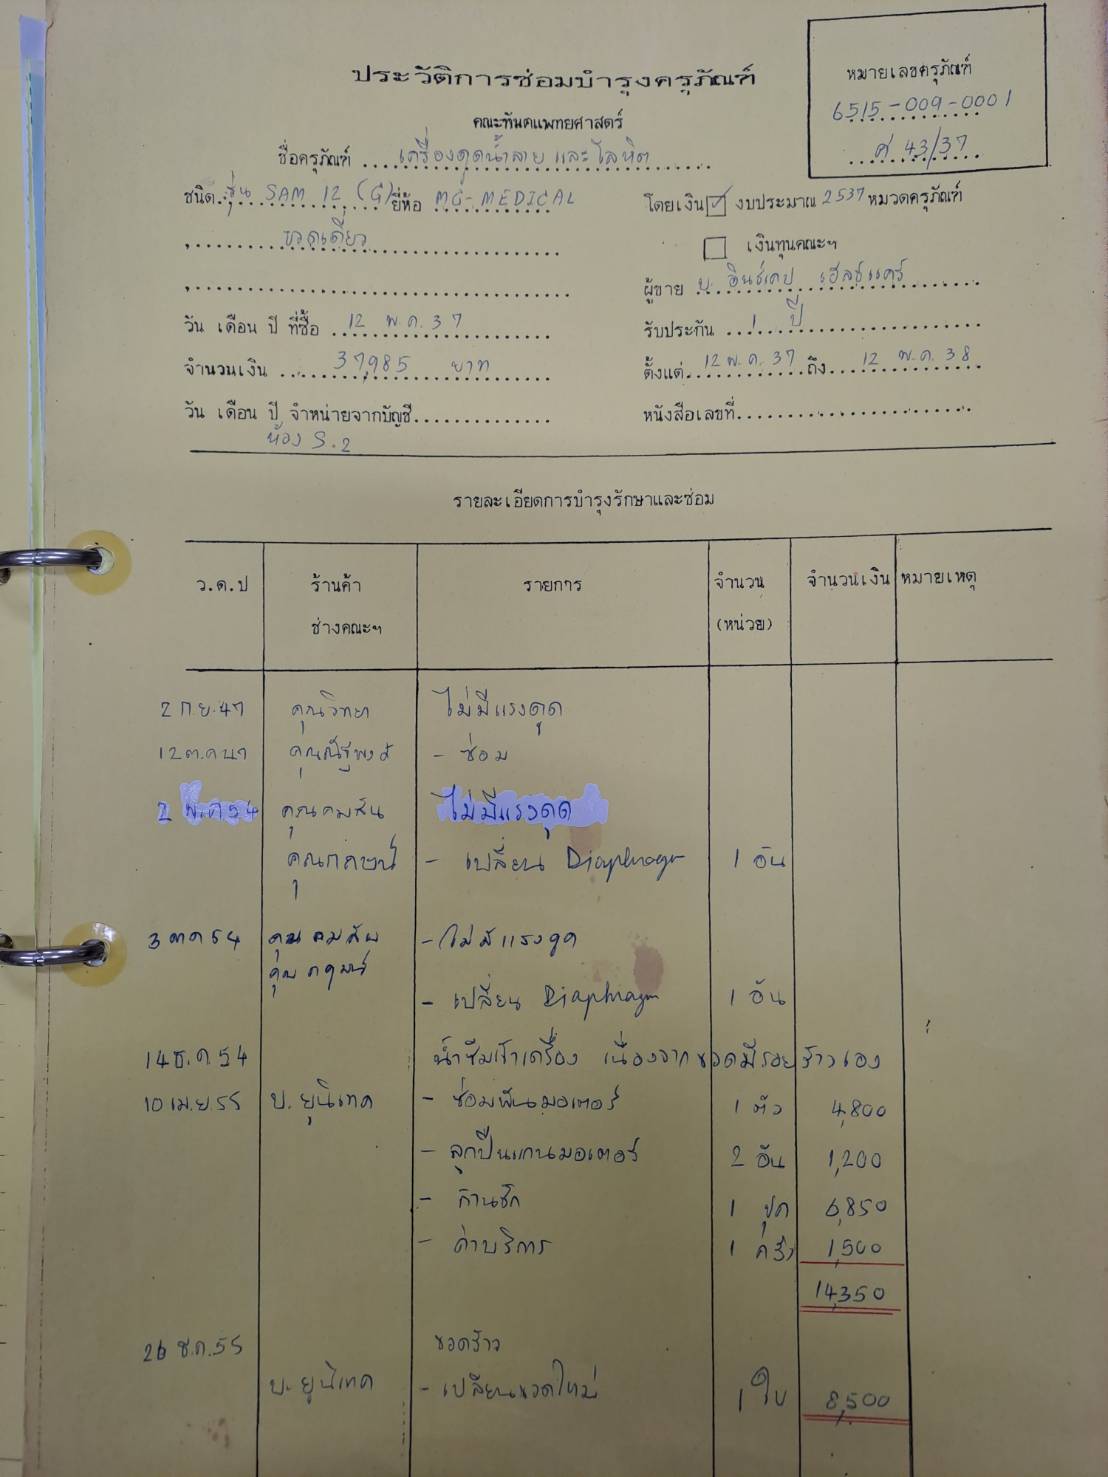 ประวัติการซ่อมบำรุงครุภัณฑ์
หมายเลขครุภัณฑ์
6515-009-0001
ศ 43/37
คณะทันตแพทยศาสตร์
ชื่อครุภัณฑ์ เครื่องดูดน้ำลาย และโลหิต
ชนิด รุ่น SAM 12 (G) ยี่ห้อ MG-MEDICAL
ขวดเดี่ยว
โดยเงิน ☑ งบประมาณ 2537 หมวดครุภัณฑ์
☐ เงินทุนคณะฯ
ผู้ขาย บ. อินซ์เคป เฮ็ลธ์แคร์
วัน เดือน ปี ที่ซื้อ 12 พ.ค. 37
รับประกัน 1 ปี
จำนวนเงิน 37,985 บาท
ตั้งแต่ 12 พ.ค. 37 ถึง 12 พ.ค. 38
วัน เดือน ปี จำหน่ายจากบัญชี
หนังสือเลขที่
ห้อง S.2
รายละเอียดการบำรุงรักษาและซ่อม
ว.ด.ป ร้านค้า รายการ จำนวน จำนวนเงิน หมายเหตุ
ช่างคณะฯ (หน่วย)
2 ก.ย. 47 คุณวิทยา ไม่มีแรงดูด
คุณณัฐพงศ์ - ซ่อม
2 พ.ค 54 คุณคมสัน ไม่มีแรงดูด
- เปลี่ยน Diaphragm 1 อัน
3 ตค 54 คุณ คมสัน - ไม่มีแรงดูด
- เปลี่ยน Diaphragm 1 อัน
14 ธ.ค 54 น้ำซึมเข้าเครื่อง เนื่องจากขวดมีรอยร้าวเอง
10 เม.ย. 55 บ. ยูนิเทค - ซ่อมพันมอเตอร์ 1 ตัว 4,800
- ลูกปืนแกนมอเตอร์ 2 อัน 1,200
- ก้านชัก 1 ชุด 6,850
- ค่าบริการ 1 ครั้ง 1,500
14,350
26 ธ.ค. 55 ขวดร้าว
บ. ยูนิเทค - เปลี่ยนขวดใหม่ 1 ใบ 8,500